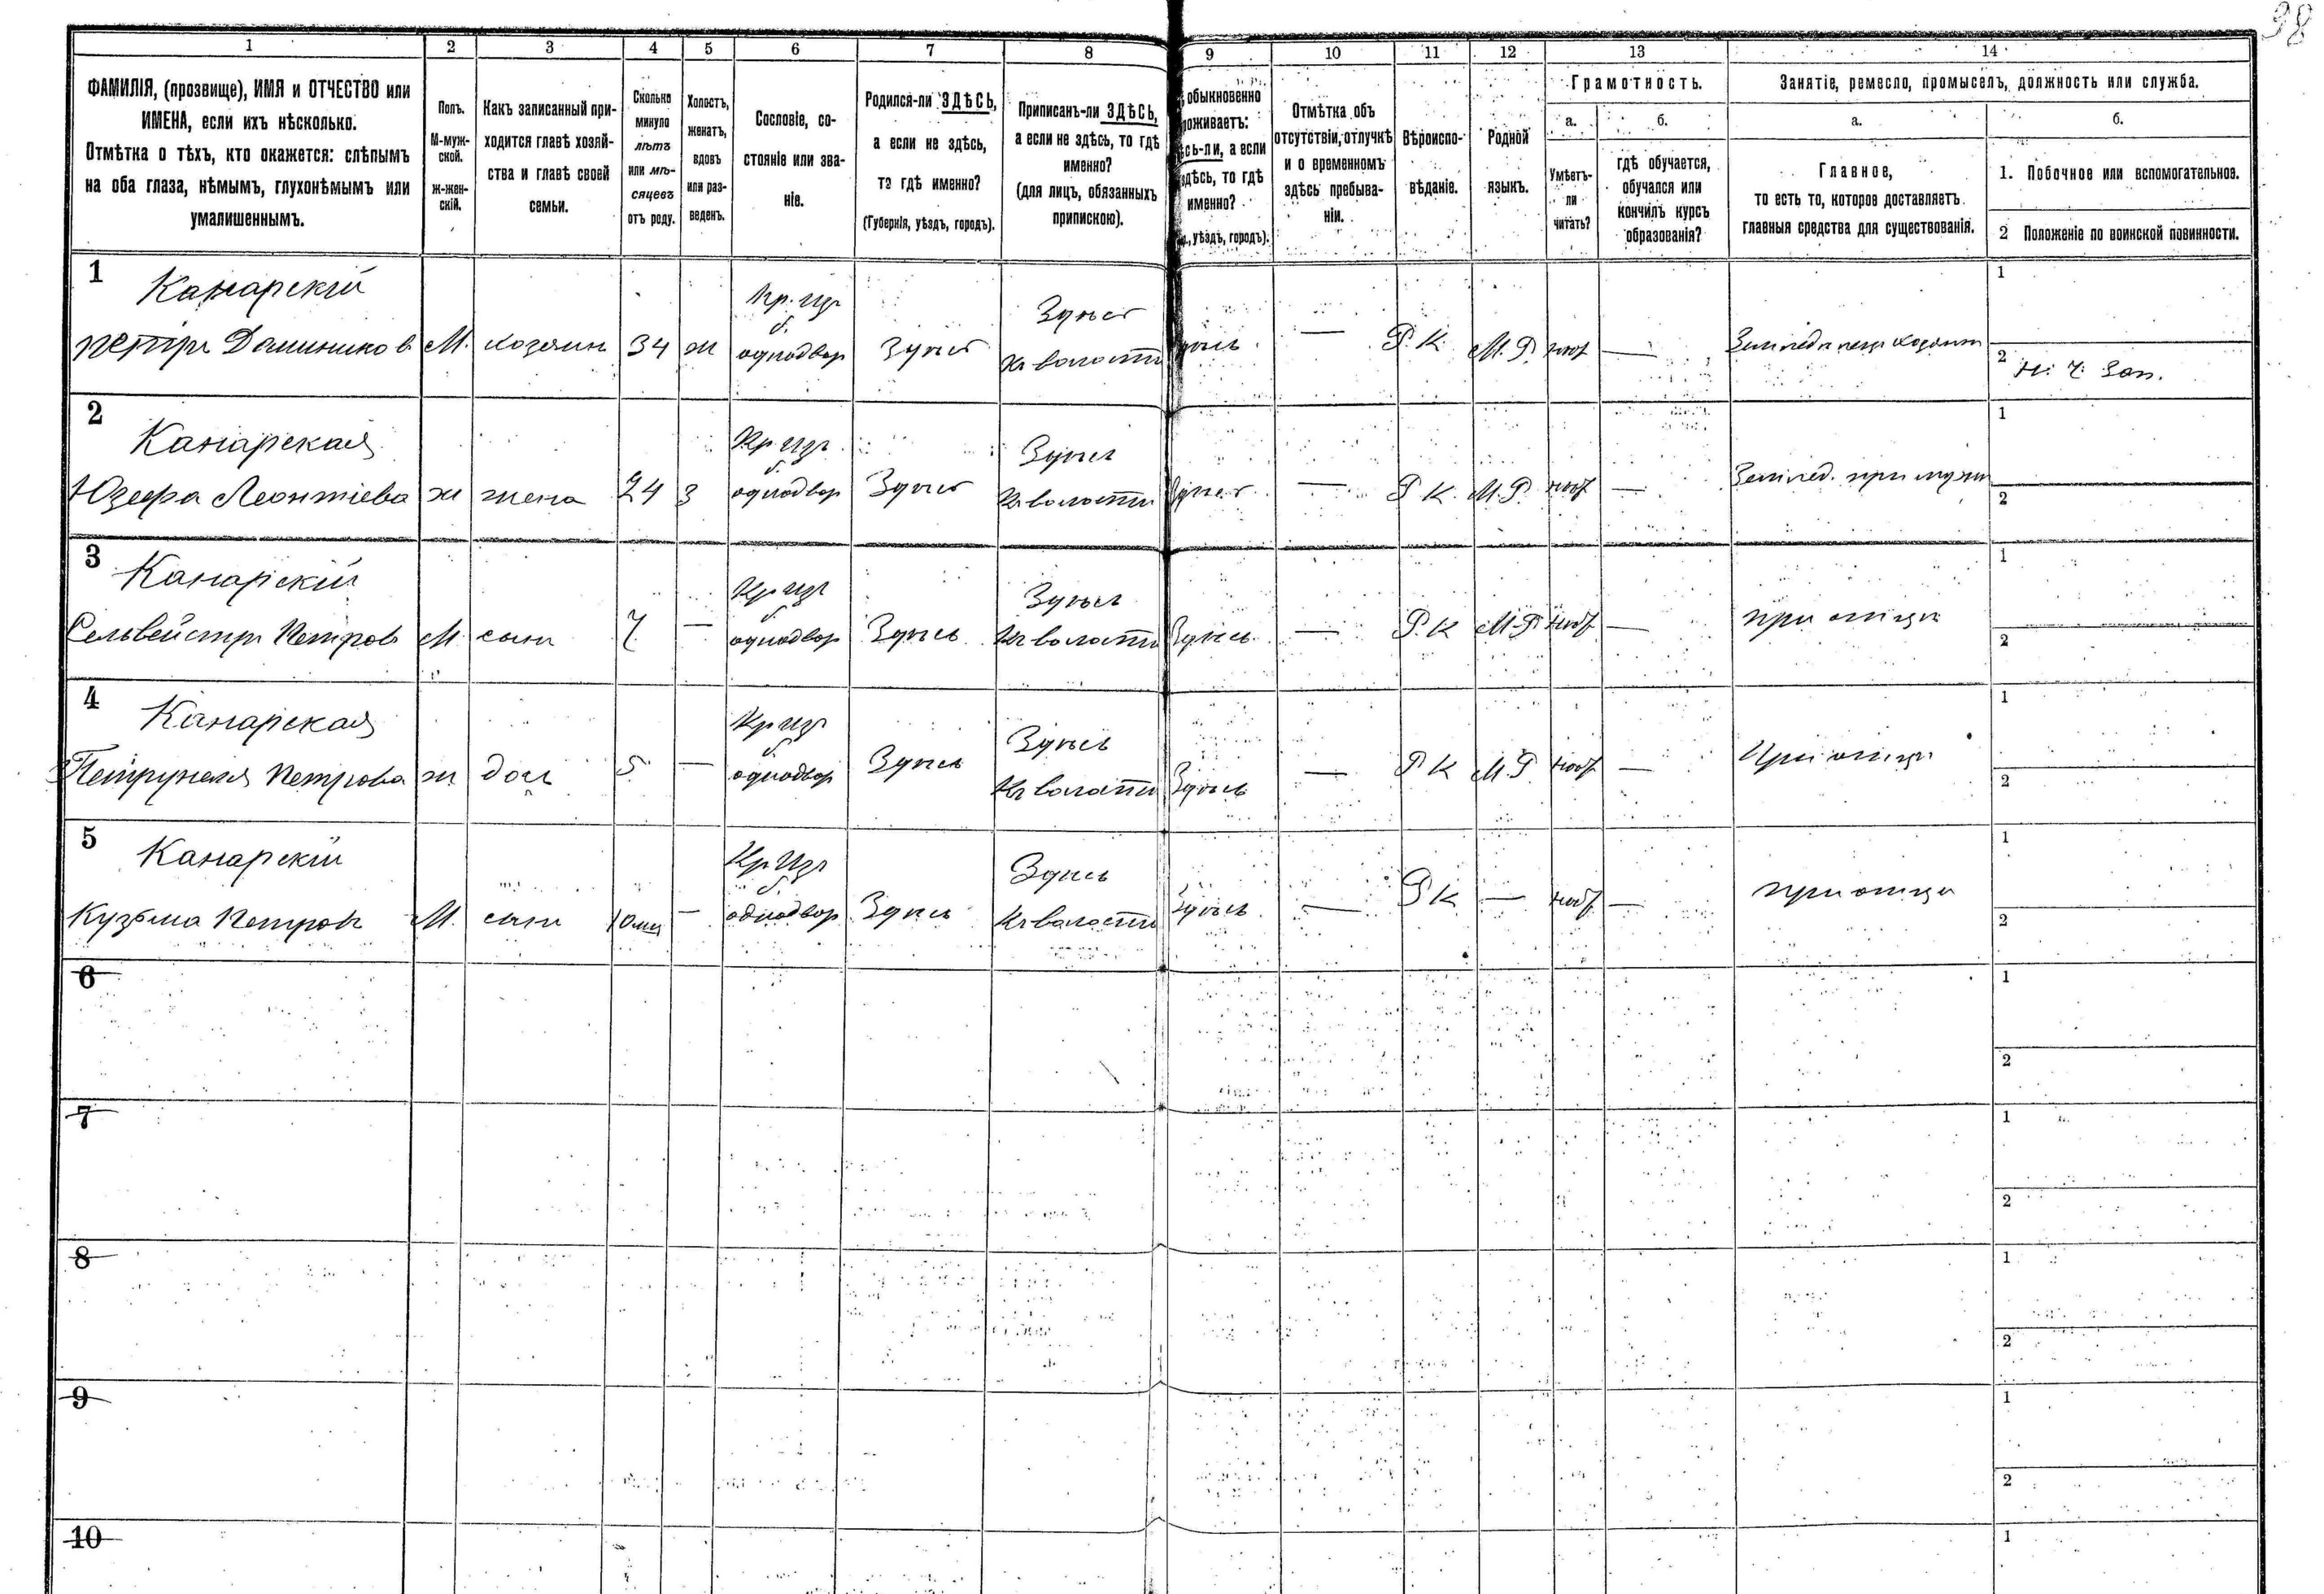 98
1 2 3 4 5 6 7 8 9 10 11 12 13 14
ФАМИЛІЯ, (прозвище), ИМЯ и ОТЧЕСТВО или
ИМЕНА, если ихъ нѣсколько.
Отмѣтка о тѣхъ, кто окажется: слѣпымъ
на оба глаза, нѣмымъ, глухонѣмымъ или
умалишеннымъ.
Полъ.
М-муж-
ской.
ж-жен-
скій.
Какъ записанный при-
ходится главѣ хозяй-
ства и главѣ своей
семьи.
Сколько
минуло
лѣтъ
или мѣ-
сяцевъ
отъ роду.
Холостъ,
женатъ,
вдовъ
или раз-
веденъ.
Сословіе, со-
стояніе или зва-
ніе.
Родился-ли ЗДѢСЬ,
а если не здѣсь,
то гдѣ именно?
(Губернія, уѣздъ, городъ).
Приписанъ-ли ЗДѢСЬ,
а если не здѣсь, то гдѣ
именно?
(для лицъ, обязанныхъ
припискою).
обыкновенно
роживаетъ:
сь-ли, а если
здѣсь, то гдѣ
именно?
уѣздъ, городъ).
Отмѣтка объ
отсутствіи, отлучкѣ
и о временномъ
здѣсь пребыва-
ніи.
Вѣроиспо-
вѣданіе.
Родной
языкъ.
Грамотность.
а. б.
Умѣетъ-
ли
читать?
гдѣ обучается,
обучался или
кончилъ курсъ
образованія?
Занятіе, ремесло, промыселъ, должность или служба.
а. б.
Главное,
то есть то, которое доставляетъ
главныя средства для существованія.
1. Побочное или вспомогательное.
2 Положеніе по воинской повинности.
1 Канарскій Кр. изъ Здѣсь 1
б.
Петръ Доминиковъ М. хозяинъ 34 ж однодвор Здѣсь Кг волости — Р. К. М. Р. — 2 Н. Ч. Зап.
2 Канарская Кр изъ Здѣсь 1
б.
Юзефа Леонтіева ж жена 24 З однодвор Здѣсь волости Здѣсь — Р К. М. Р. — Землед. при мужѣ 2
3 Канарскій Кр изъ Здѣсь 1
б.
Сельвейстръ Петровъ М. сынъ 7 — однодвор Здѣсь волости Здѣсь — Р. К М. Р — при отцѣ 2
4 Канарская Кр изъ Здѣсь 1
б.
Петрунеля Петрова ж доч 5 — однодвор Здѣсь волости Здѣсь — Р К М. Р — При отцѣ 2
5 Канарскій Кр Изъ Здѣсь 1
б.
Кузьма Петровъ М. сынъ 10 мц — однодвор Здѣсь волости Здѣсь — Р К — — при отцѣ 2
6 1
2
7 1
2
8 1
2
9 1
2
10 1